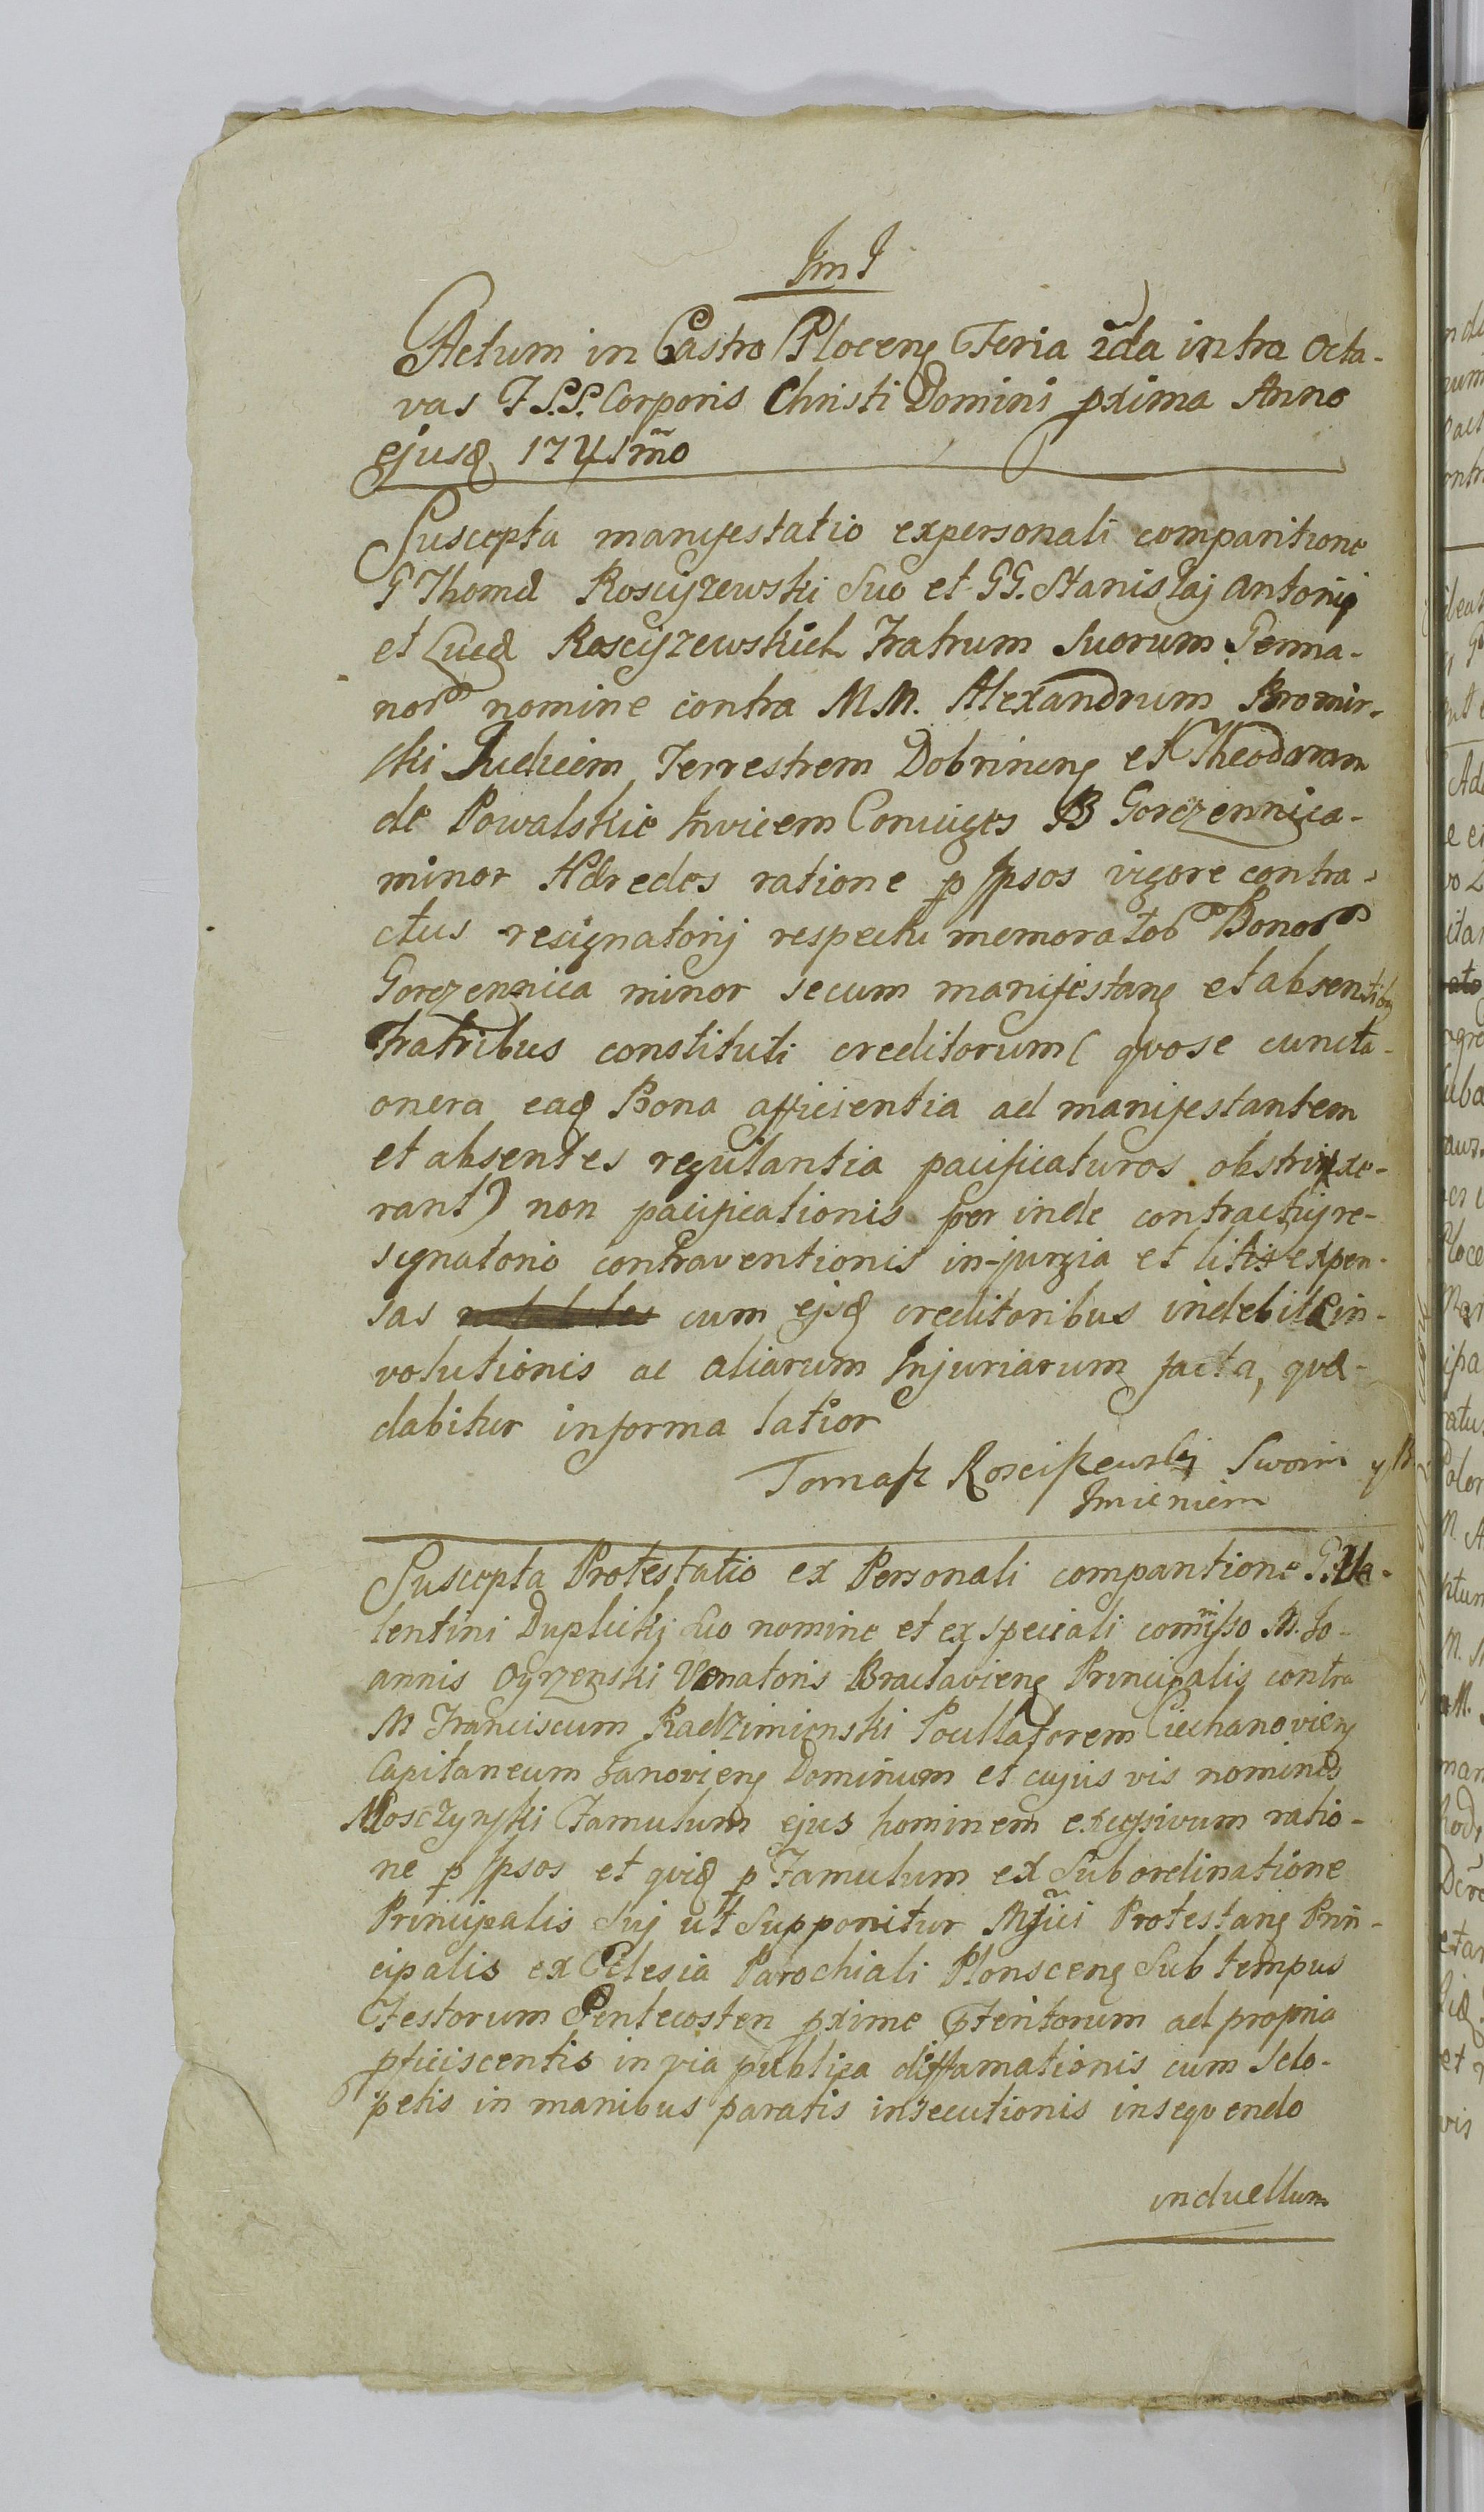 JmJ
Actum in Castro Plocens Feria 2da intra Octa-
vas F S.S. Corporis Christi Domini pxima Anno
ejusd 1741mo
Suscepta manifestatio expersonali comparitione
G Thomæ Roscyszewski Suo et GG. Stanislaj Antonij
et Lucæ Roscyszewskich Fratrum Suorum Germa-
nor nomine contra MM. Alexandrum Bromir-
ski Judicem Terrestrem Dobrinens et Theodoram
de Powalskie Invicem Coniuges B Gorczennica-
minor Hæredes ratione p Ipsos vigore contra-
ctus resignatorij respectu memorator Bonor
Gorczennica minor secum manifestans et absentibus
Fratribus constituti creditorum ( qvo se cuncta
onera ead Bona afficientia ad manifestantem
et absentes regulantia pacificaturos obstrinxe-
rant) non pacificationis per inde contractuj re-
signatorio contraventionis in-jurgia et litis expen-
sas cum ejsd creditoribus indebite in-
volutionis ac aliarum Injuriarum facta, qvæ
dabitur informa latior
Tomasz Rosciszewski Swoim y B
Imieniem
Suscepta Protestatio ex Personali comparitione G. Va-
lentini Duplickj Suo nomine et ex speciali commisso M. Jo-
annis Ogrzenski Venatoris Braclaviens Principalis contra
M Franciscum Radzimienski Pocillatorem Ciechanoviens
Capitaneum Janoviens Dominum et cujus vis nominis
Mosczynski Famulum ejus hominem excessivum ratio-
ne p Ipsos et qvid p Famulum ex Subordinatione
Principalis Suj ut Supponitur Mfici Protestans Prin-
cipalis ex Eclesia Parochiali Plonscens Sub tempus
Festorum Pentecosten pxime pteritorum ad propria
pficiscentis in via publica diffamationis cum Sclo-
petis in manibus paratis insecutionis inseqvendo
induellum